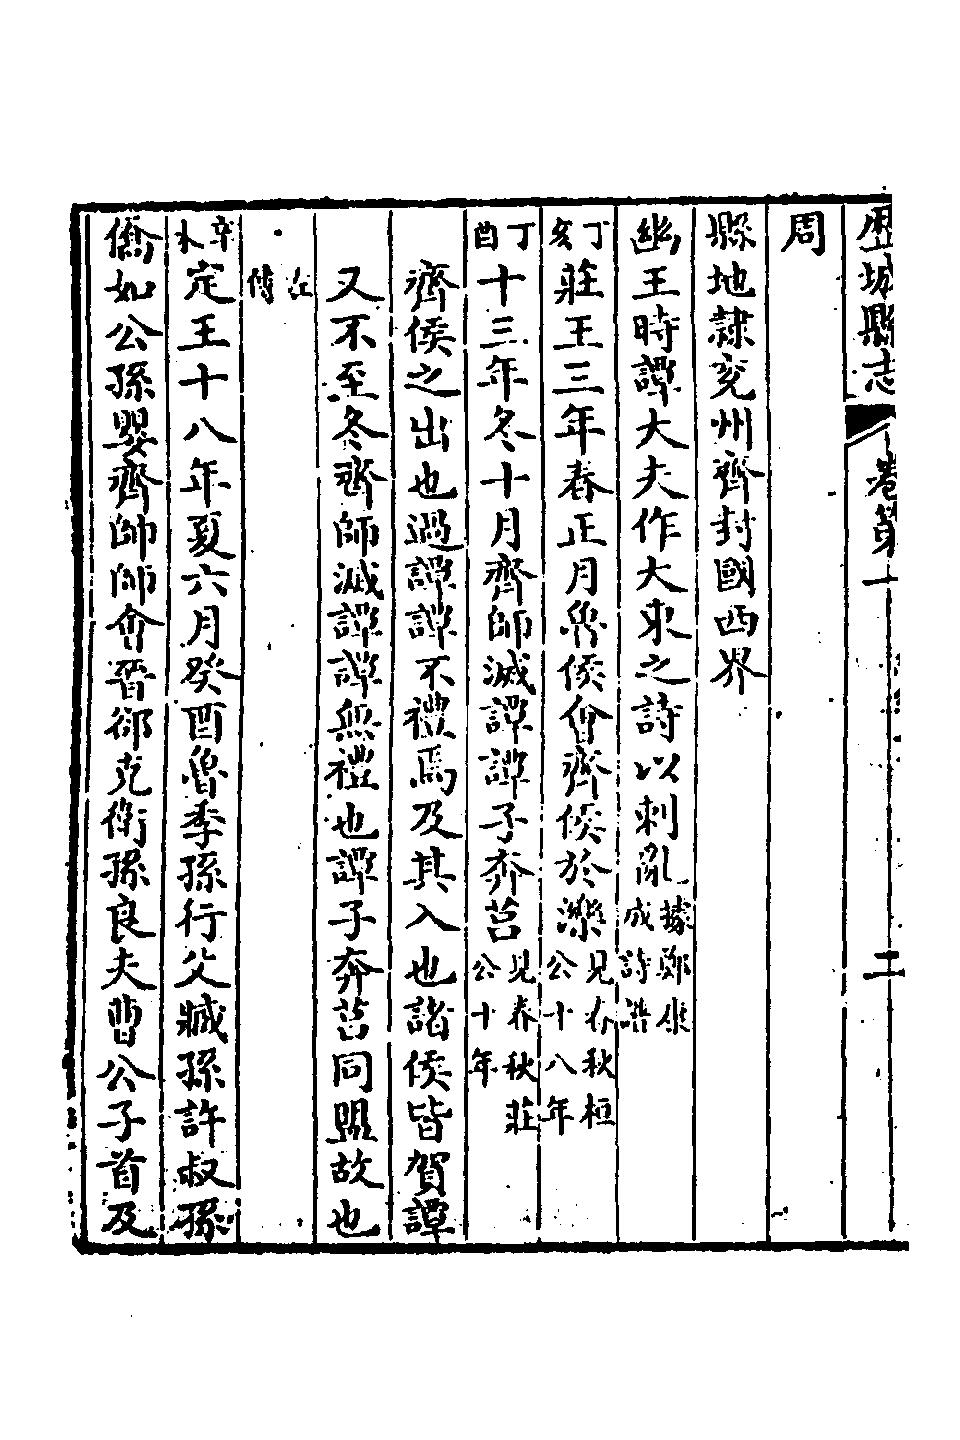 歷城縣志 卷第一 二
周
縣地隸兖州齊封國西界
幽王時譚大夫作大東之詩以刺亂據鄭康成詩譜
丁亥莊王三年春正月魯侯會齊侯於濼見春秋桓公十八年
丁酉十三年冬十月齊師滅譚譚子奔莒見春秋莊公十年
齊侯之出也過譚譚不禮焉及其入也諸侯皆賀譚
又不至冬齊師滅譚譚無禮也譚子奔莒同盟故也
左傳
辛未定王十八年夏六月癸酉魯季孫行父臧孫許叔孫
僑如公孫嬰齊帥師會晉郤克衛孫良夫曹公子首及